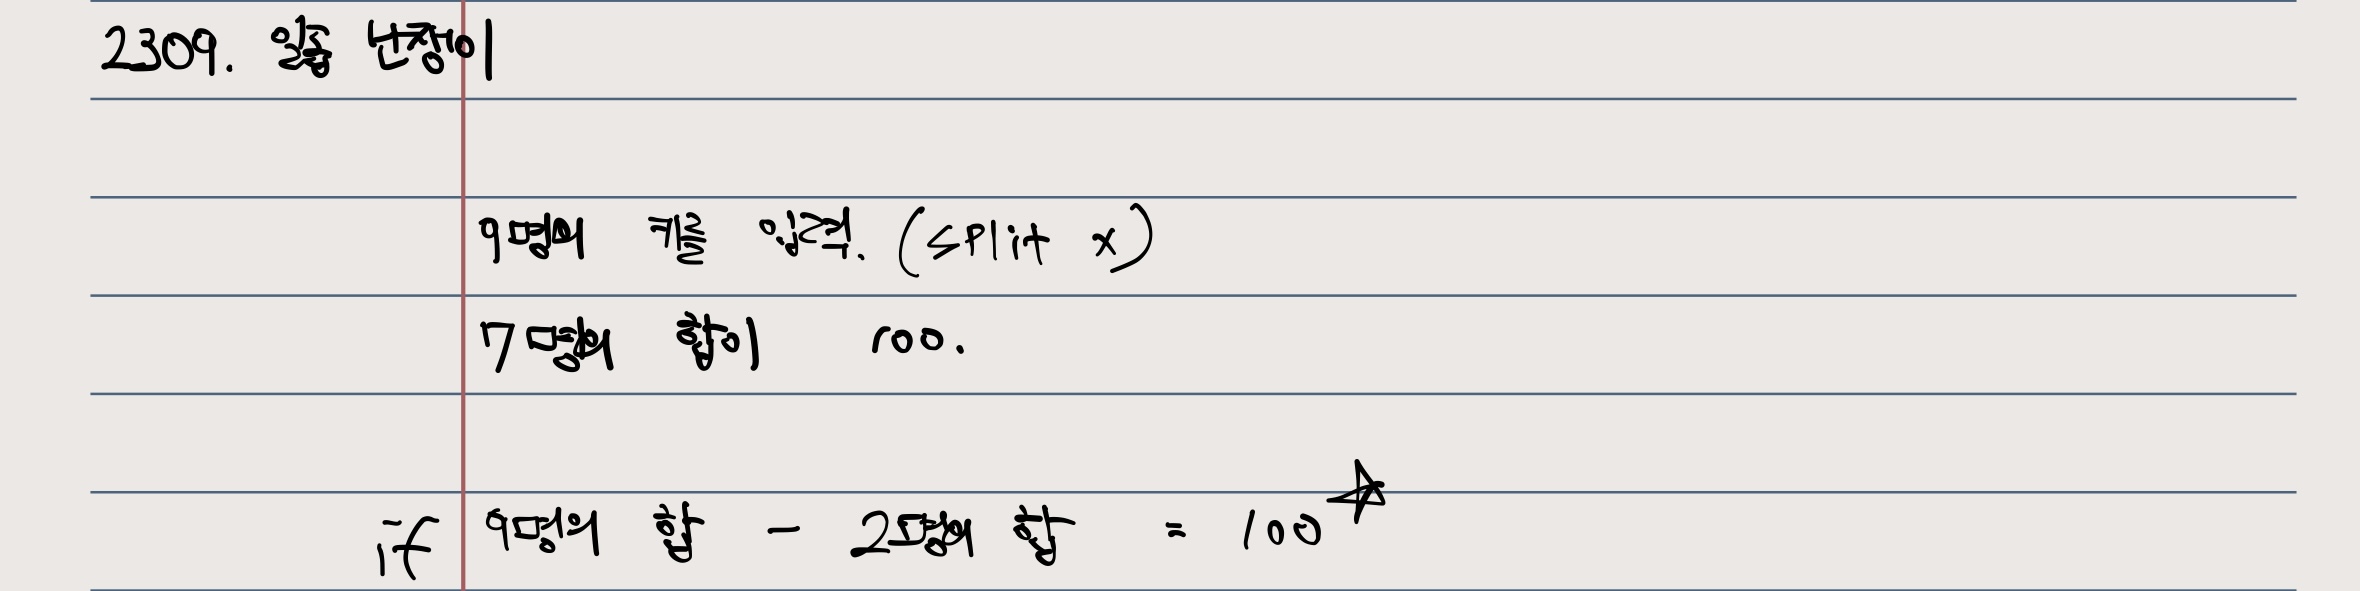 2309. 일곱 난쟁이
9명의 키를 입력. (split x)
7명의 합이 100.
if 9명의 합 - 2명의 합 = 100 ☆